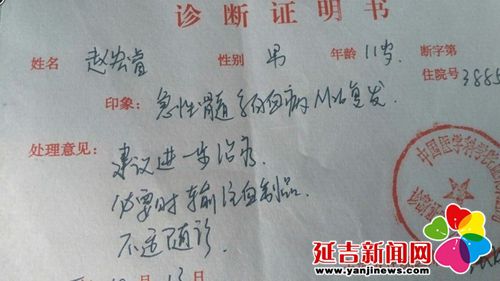 诊断证明书
姓名 赵宏睿 性别 男 年龄 11岁 断字第
住院号 3885
印象: 急性髓系白血病M2复发.
处理意见: 建议进一步治疗
必要时输注血制品
不适随诊.
10月13日
中国医学科学院
延吉新闻网
(www.yanjinews.com)